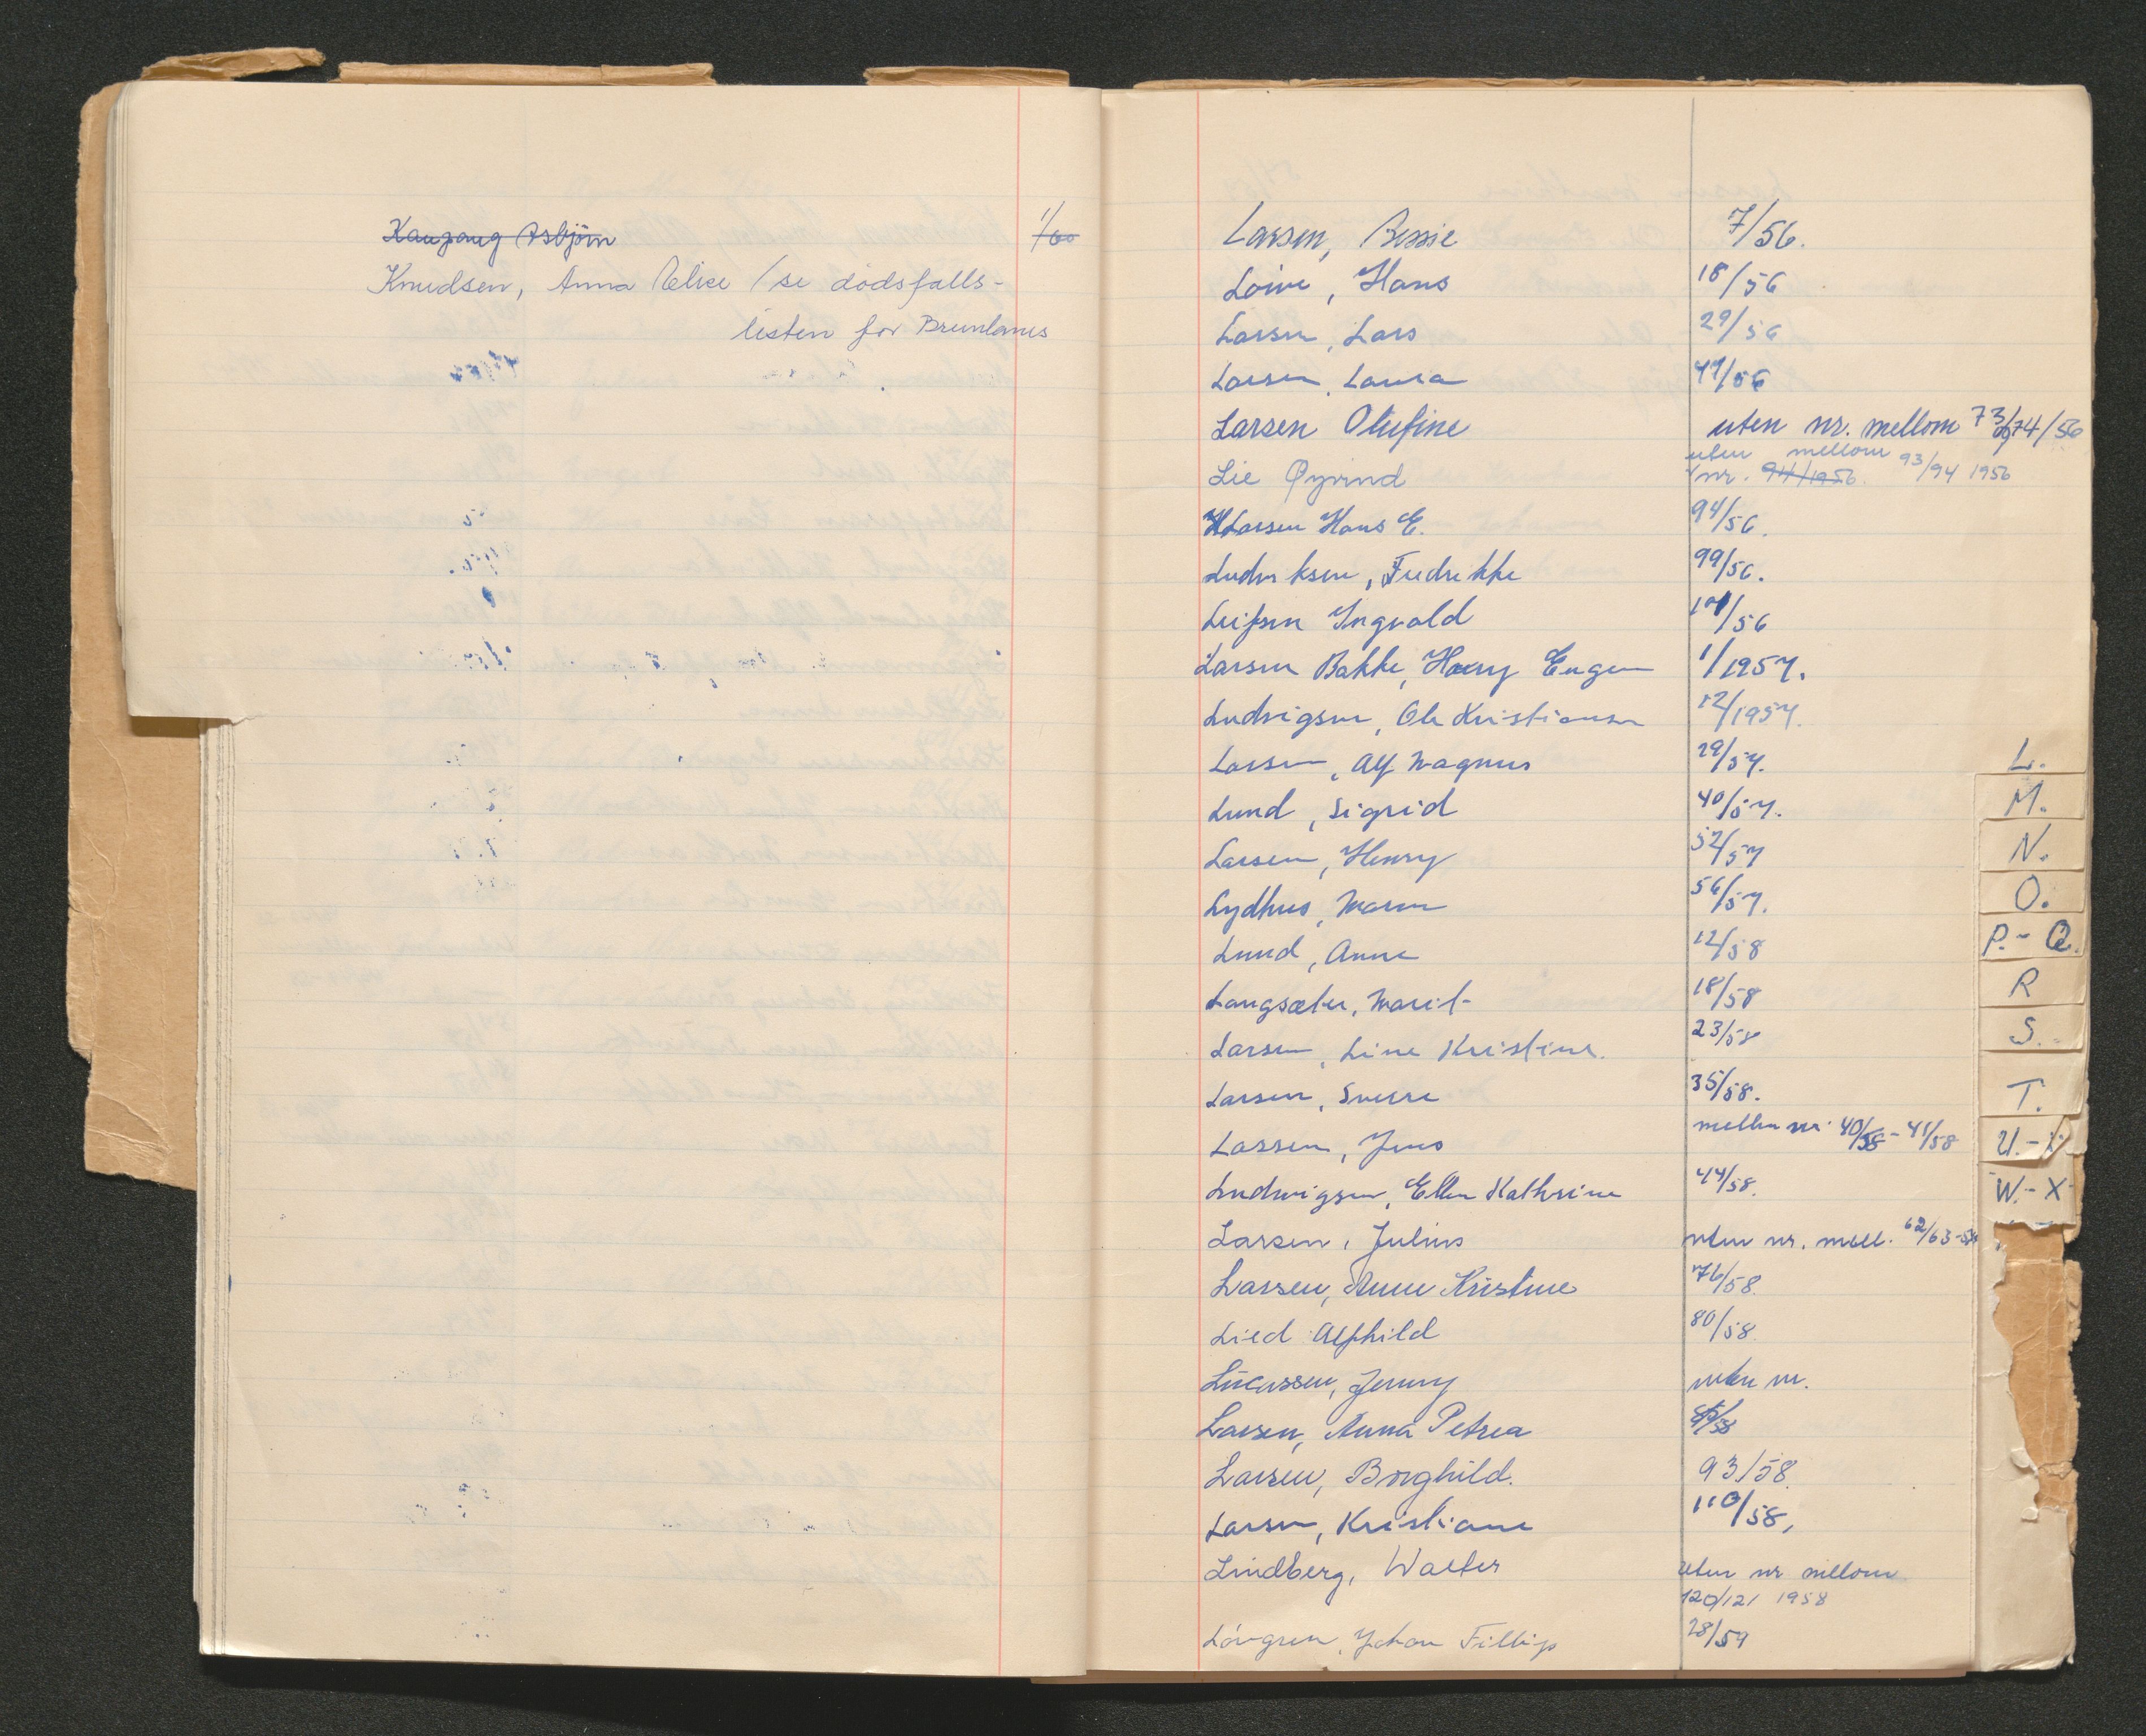 Kaugang Asbjörn 1/60
Knudsen, Anna Elise / se dødsfalls-
listen for Brunlanes
Larsen, Bessie 7/56.
Loive, Hans 18/56
Larsen, Lars 29/56
Larsen, Laura 47/56
Larsen Olufine uten nr. mellom 73/74/56
uten mellom
Lie Øyvind nr. 94/1956. 93/94 1956
Larsen Hans E. 94/56.
Ludviksen, Fredrikke 99/56.
Leifsen Yngvald /56
Larsen Bakke, Harry Eugen 1/1957.
Ludvigsen, Ole Kristiansen 12/1957.
Larsen, Alf Magnus 29/57.
Lund, Sigrid 40/57.
Larsen, Henry 52/57
Lydhus, Maren 56/57.
Lund, Anne 12/58
Langsæter, Marit 18/58
Larsen, Line Kristine. 23/58
Larsen, Sverre 35/58.
Larsen, Jens mellem nr. 40/58 - 41/58
Ludvigsen, Ellen Kathrine 44/58.
Larsen, Julius uten nr. mell. 62/63-58
Larsen, Anne Kristine 76/58.
Lied Alfhild 80/58.
Lucassen, Jenny uten nr.
Larsen, Anna Petrea /58
Larsen, Borghild. 93/58.
Larsen, Kristiane 110/58,
Lindberg, Walter uten nr mellom
120/121 1958
Lövgren, Johan Fillip 28/59
L.
M.
N.
O.
P.-Q.
R
S.
T.
U.-
W.-X